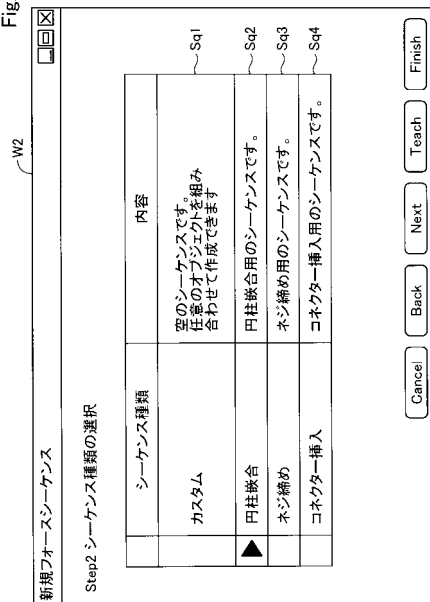 Fig
W2
新規フォースシーケンス
Step2 シーケンス種類の選択
シーケンス種類 内容
カスタム 空のシーケンスです。
任意のオブジェクトを組み
合わせて作成できます
Sq1
円柱嵌合 円柱嵌合用のシーケンスです。 Sq2
ネジ締め ネジ締め用のシーケンスです。 Sq3
コネクター挿入 コネクター挿入用のシーケンスです。 Sq4
Cancel Back Next Teach Finish